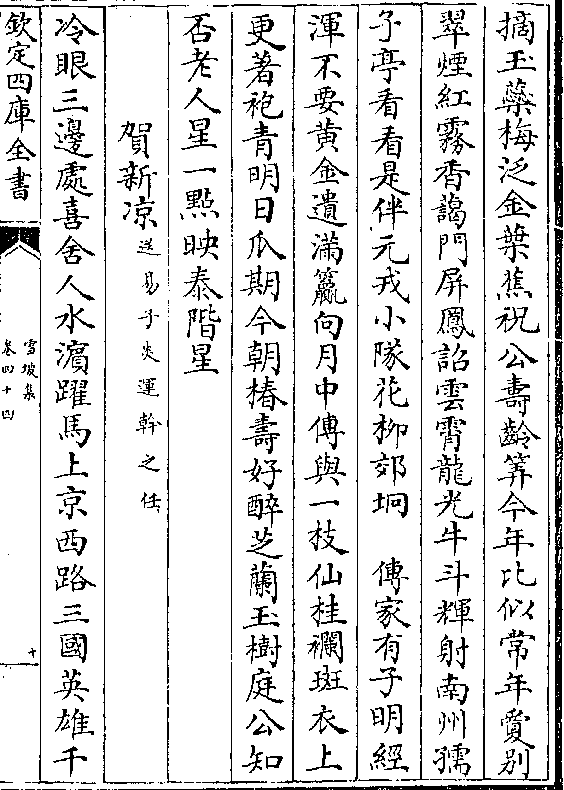 摘玉蘂梅泛金葉蕉祝公壽齡筭今年比似常年賣别
翠煙紅霧香藹門屏鳳詔雲霄龍光牛斗輝射南州孺
子亭看看是伴元戎小隊花柳郊坰　傳家有子明經
渾不要黄金遺滿籯向月中傳與一枝仙桂襴斑衣上
更著袍青明日瓜期今朝椿壽好醉芝蘭玉樹庭公知
否老人星一點映泰階星
賀新凉送易子炎運幹之任
冷眼三邊處喜舍人水濵躍馬上京西路三國英雄千
欽定四庫全書
雪坡集
卷四十四
十